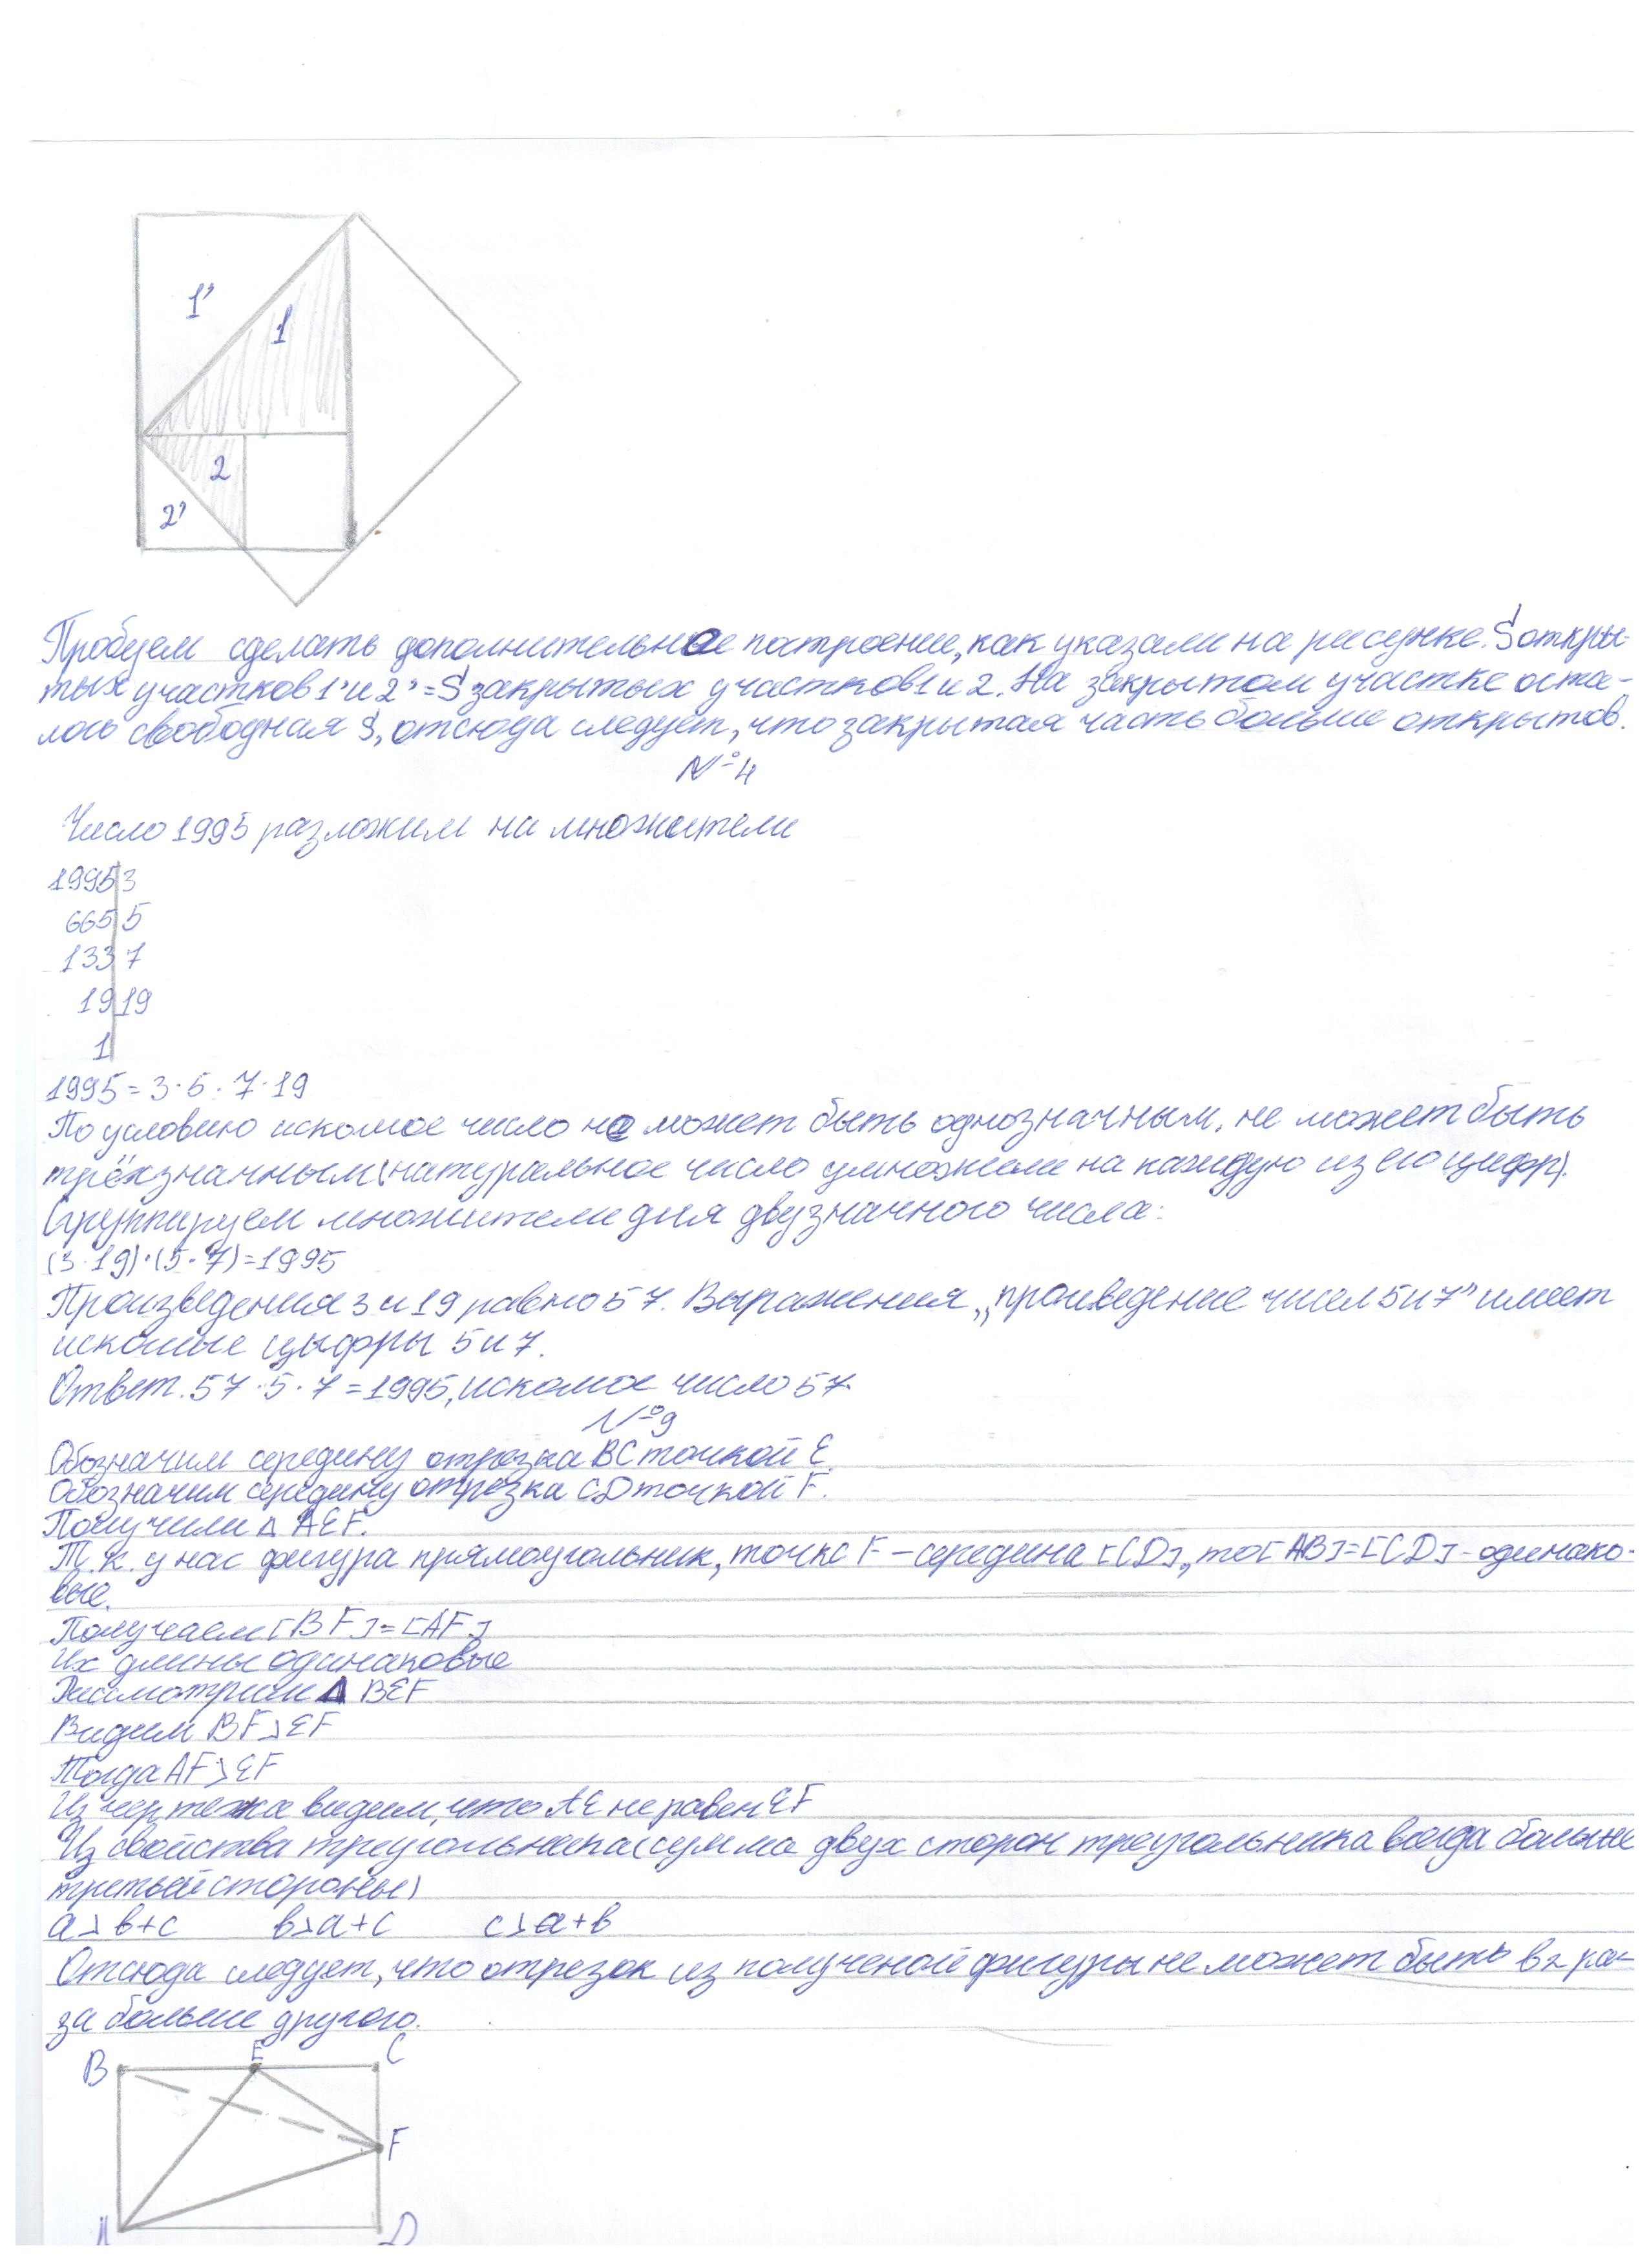 1'
1
2
2'
Пробуем сделать дополнительное построение, как указали на рисунке. S откры-
тых участков 1' и 2' = S закрытых участков 1 и 2. На закрытом участке оста-
лось свободная S, отсюда следует, что закрытая часть больше открытов.
№4
Число 1995 разложим на множители
1995 3
665 5
133 7
19 19
1
1995 = 3·5·7·19
По условию искомое число не может быть однозначным, не может быть
трёхзначным (натуральное число умножили на каждую из его цифр).
Группируем множители для двузначного числа:
(3·19)·(5·7)=1995
Произведения 3 и 19 равно 57. Выражения „произведение чисел 5 и 7" имеет
искомые цыфры 5 и 7.
Ответ. 57·5·7=1995, искомое число 57.
№9
Обозначим середину отрезка BC точкой E.
Обозначим середину отрезка CD точкой F.
Получили Δ AEF.
Т.к. у нас фигура прямоугольник, точка F – середина [CD], то [AB]=[CD] – одинако-
вые.
Получаем [BF]=[AF]
Их длины одинаковые
Рассмотрим Δ BEF
Видим BF>EF
Тогда AF>EF
Из чертежа видим, что AE не равен EF
Из свойства треугольника (сумма двух сторон треугольника всегда больше
третьей стороны)
a>b+c b>a+c c>a+b
Отсюда следует, что отрезок из полученой фигуры не может быть в 2 ра-
за больше другого.
B E C
F
A D